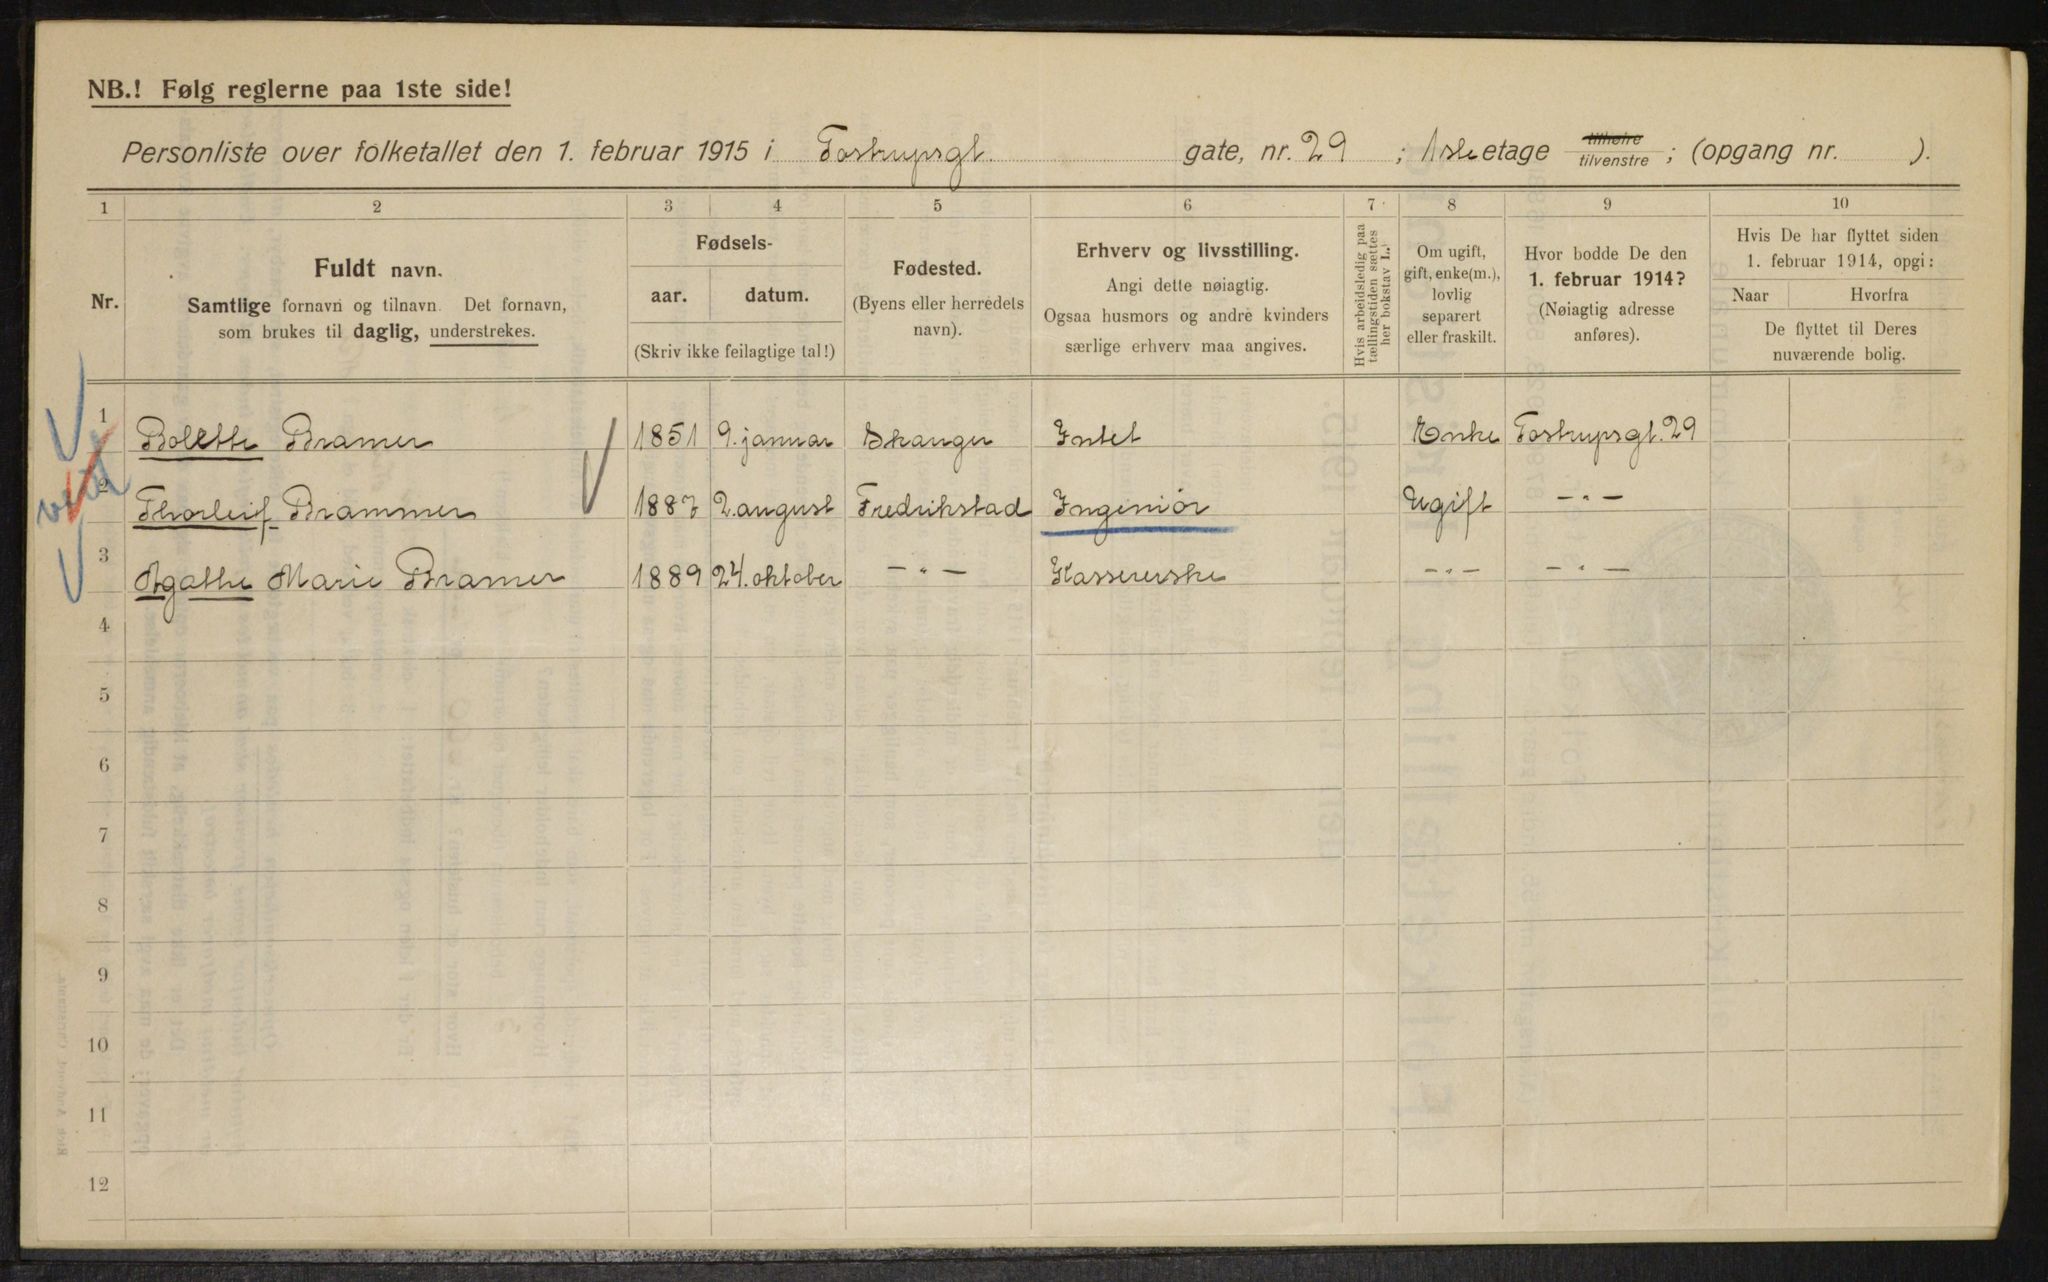 NB.! Følg reglerne paa 1ste side!
Personliste over folketallet den 1. februar 1915 i Tostrupsgt. gate, nr. 29 ; 1ste etage tilhøire tilvenstre ; (opgang nr. ).
1 2 3 4 5 6 7 8 9 10
Nr.
Fuldt navn.
Samtlige fornavn og tilnavn. Det fornavn,
som brukes til daglig, understrekes.
Fødsels-
aar. datum.
(Skriv ikke feilagtige tal!)
Fødested.
(Byens eller herredets
navn).
Erhverv og livsstilling.
Angi dette nøiagtig.
Ogsaa husmors og andre kvinders
særlige erhverv maa angives.
Hvis arbeidsledig paa
tællingstiden sættes
her bokstav L.!
Om ugift,
gift, enke(m.),
lovlig
separert
eller fraskilt.
Hvor bodde De den
1. februar 1914?
(Nøiagtig adresse
anføres).
Hvis De har flyttet siden
1. februar 1914, opgi:
Naar Hvorfra
De flyttet til Deres
nuværende bolig.
1 Bolette Bramer 1851 9. januar Skanger Intet Enke Tostrupsgt. 29
2 Thorleif Brammer 1887 2. august Fredrikstad Ingeniør Ugift -„-
3 Agathe Marie Bramer 1889 24. oktober -„- Kassererske -„- -„-
4
5
6
7
8
9
10
11
12